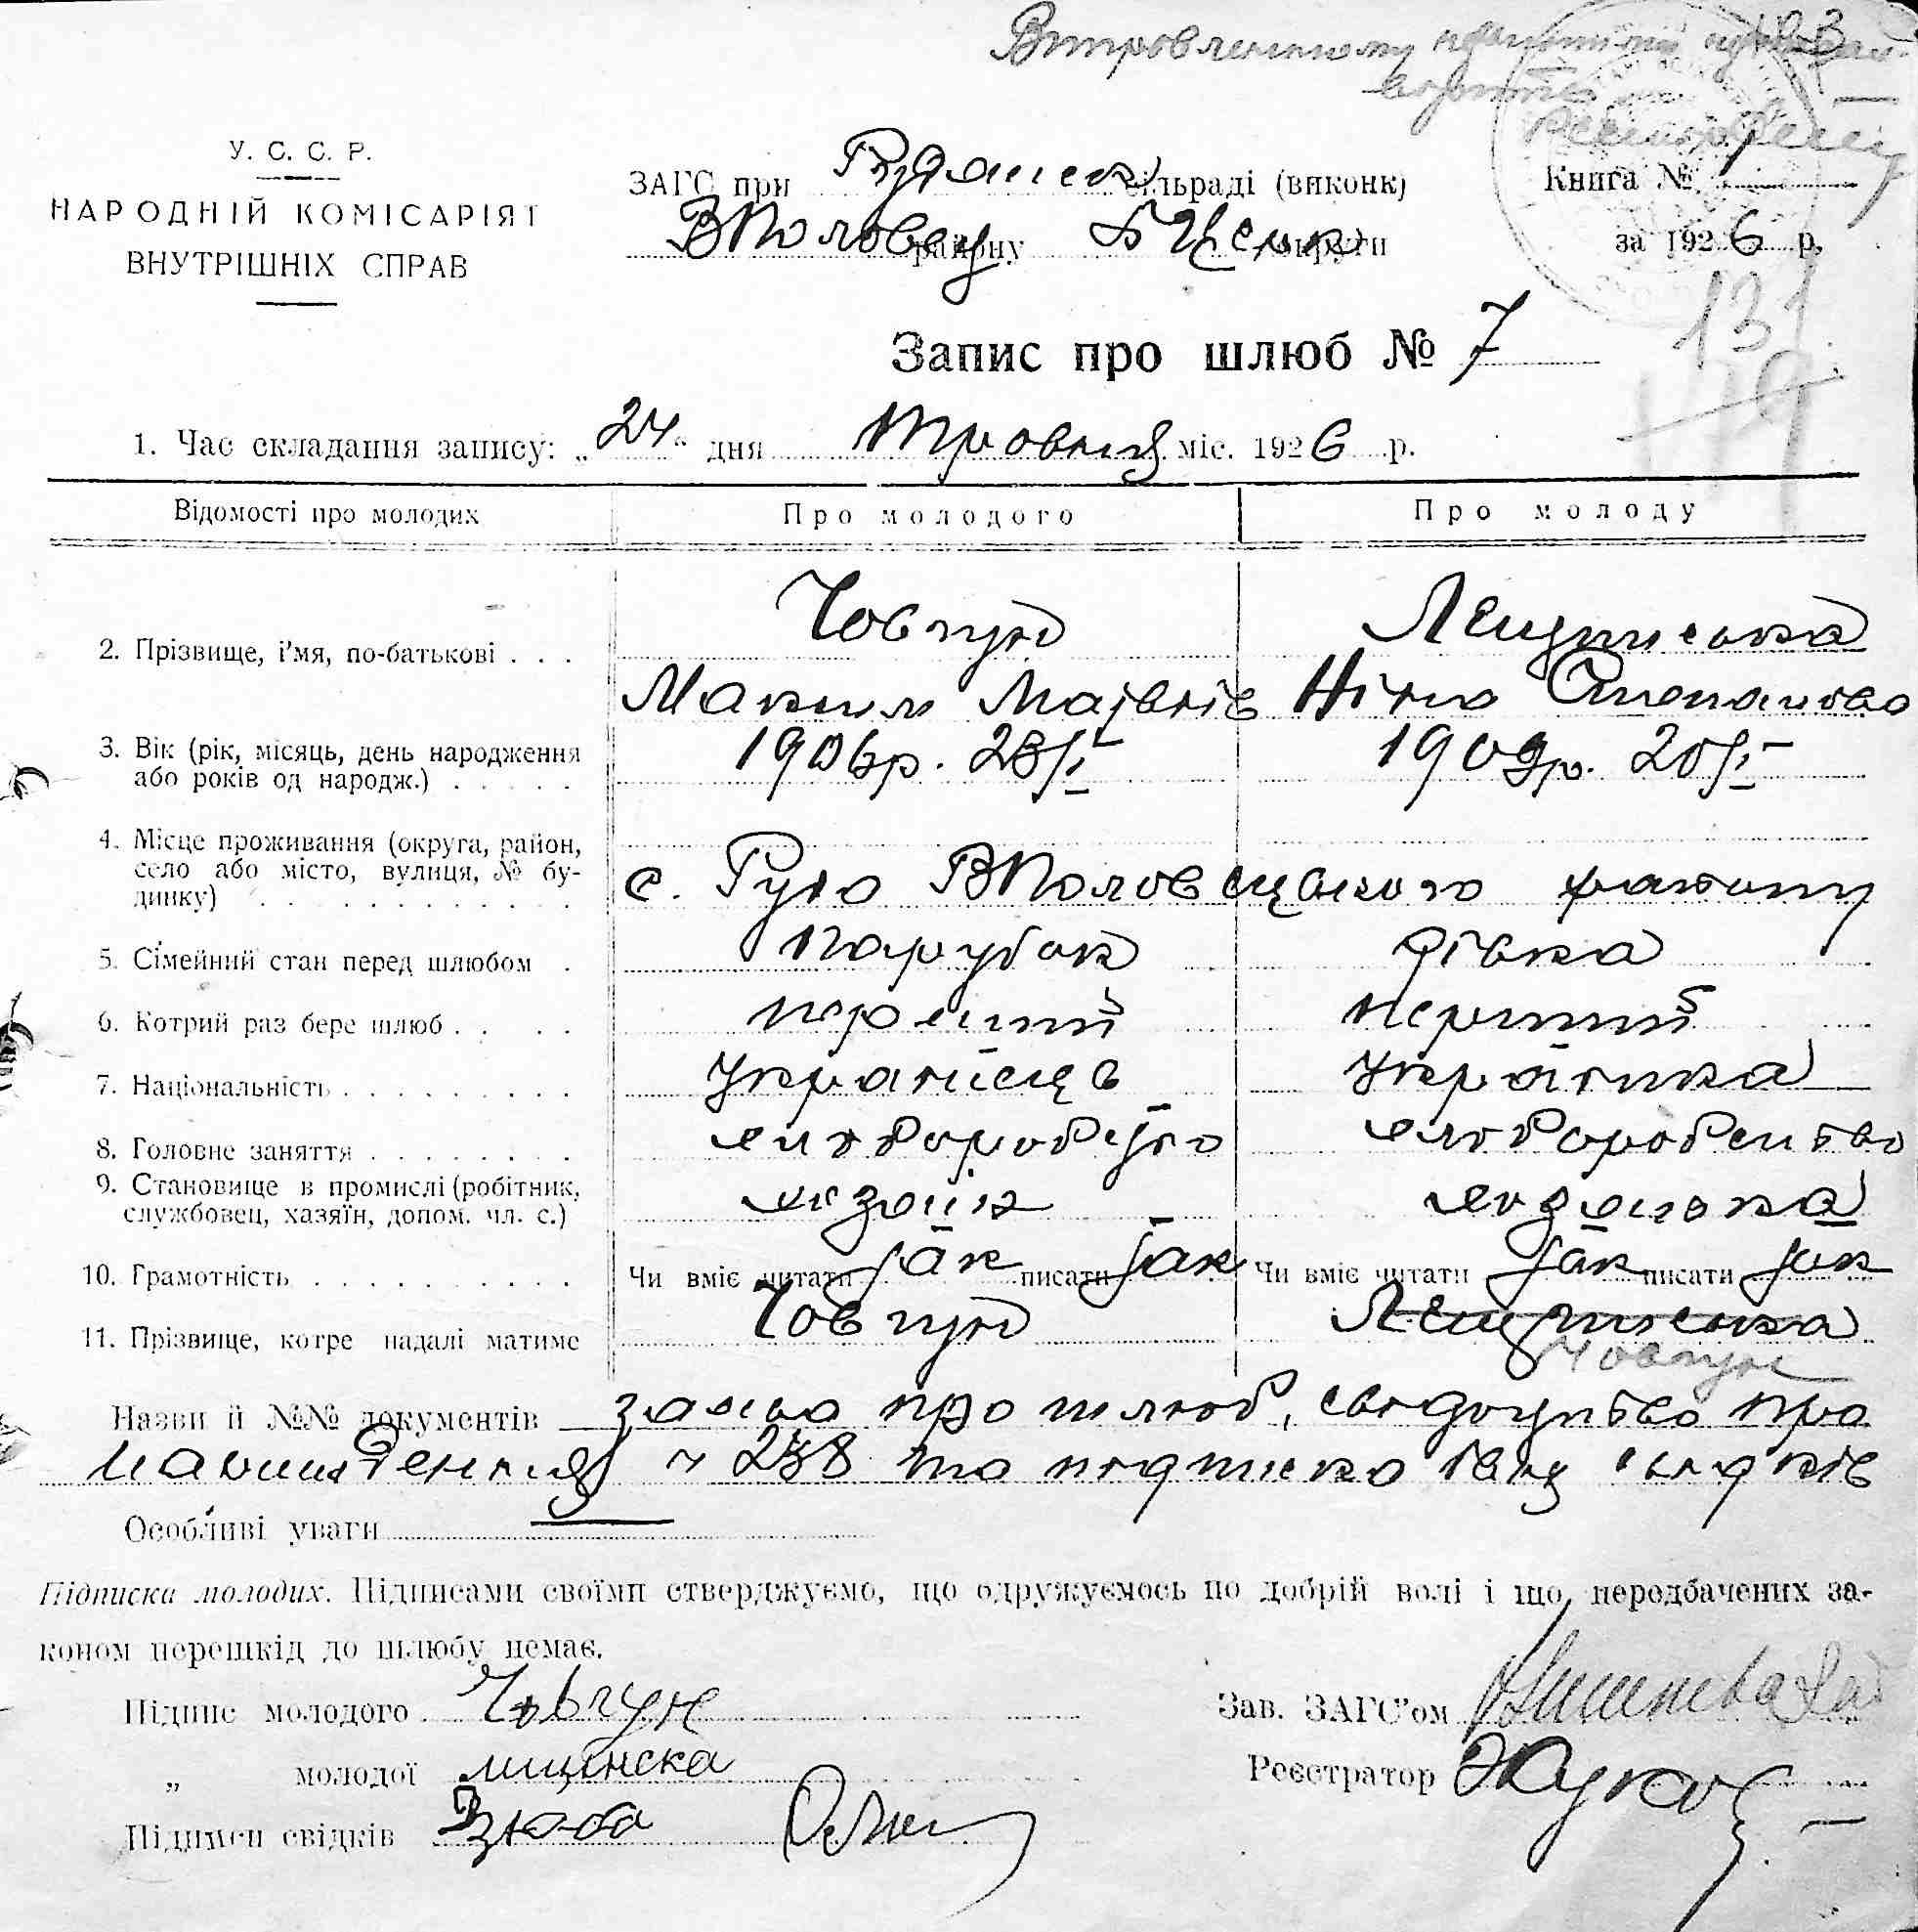 У. С. С. Р.
НАРОДНІЙ КОМІСАРІЯТ
ВНУТРІШНІХ СПРАВ
ЗАГС при сільраді (виконк)
ВПоловец району БЦерк округи
Книга № 1
за 1926 р.
131
Запис про шлюб № 7
1. Час складання запису: „24“ дня травня міс. 1926 р.
Відомості про молодих Про молодого Про молоду
2. Прізвище, і'мя, по-батькові . . . Човгун Лещинська
Максим Матвіїв Ніна Степанова
3. Вік (рік, місяць, день народження або років од народж.) 1906р. 23/I 1909р. 20/I
4. Місце проживання (округа, район, село або місто, вулиця, № будинку) с. Руда ВПоловецького району
5. Сімейний стан перед шлюбом парубок дівка
6. Котрий раз бере шлюб перший перший
7. Національність українець українка
8. Головне заняття хлібороб хлібороб
9. Становище в промислі (робітник, службовец, хазяїн, допом. чл. с.) хазяїн хазяйка
10. Грамотність Чи вміє читати так писати так Чи вміє читати так писати так
11. Прізвище, котре надалі матиме Човгун Лещинська
Човгун
Назви й №№ документів заява про шлюб, свідоцтво про
народження ч 238 та підписка двох свідків
Особливі уваги —
Підписка молодих. Підписами своїми стверджуємо, що одружуємось по добрій волі і що передбачених за-
коном перешкід до шлюбу немає.
Підпис молодого Човгун
Зав. ЗАГС'ом
„ молодої лищінска
Реєстратор Жуков
Підписи свідків Зюба